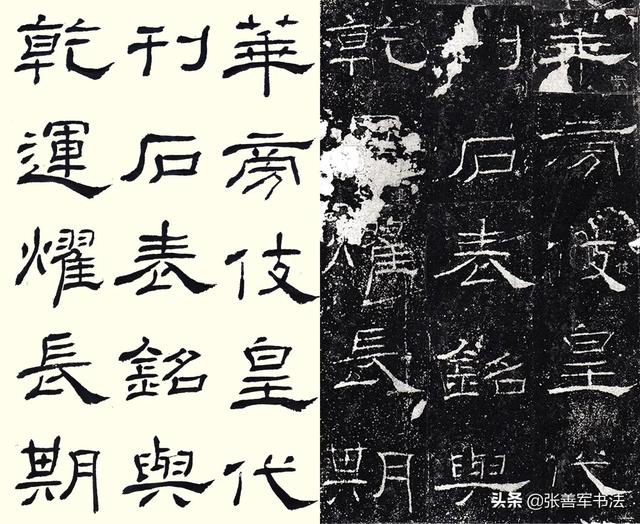 華旁伎皇代
刊石表銘與
乾運燿長期
華旁伎皇代
刊石表銘與
乾燿長期
头条 @张善军书法